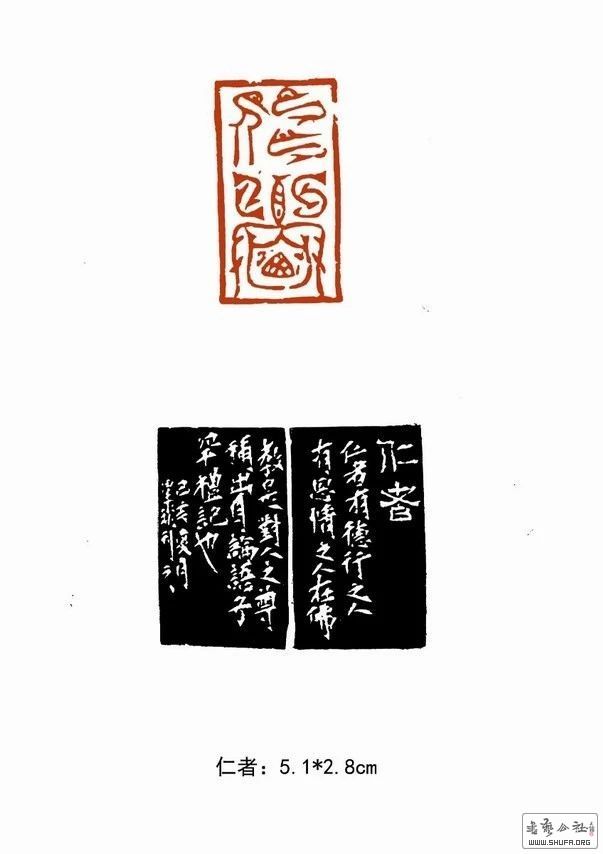 仁者
仁者
仁者有德行之人
有恩情之人在佛
教是對人之尊
稱出自論語子
罕禮記也
己亥夏月
仁者：5.1*2.8cm
書藝公社
WWW.SHUFA.ORG